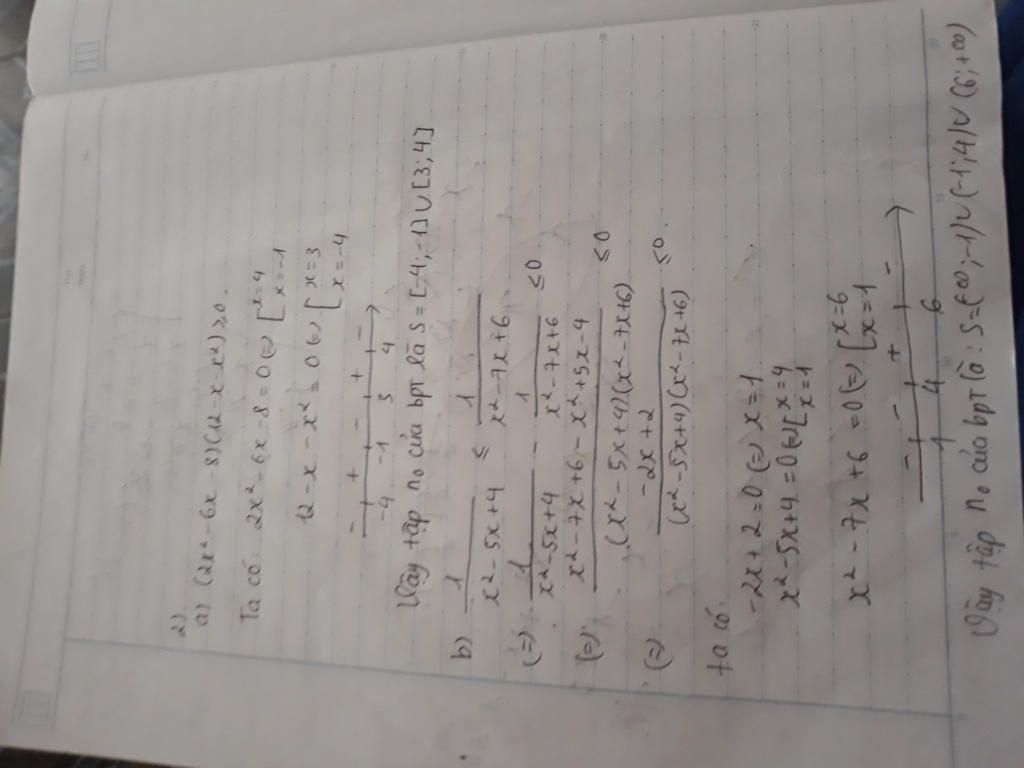 2)
a) (2x² - 6x - 8)(12 - x - x²) ≥ 0.
Ta có: 2x² - 6x - 8 = 0 (=) [x = 4
x = -1
12 - x - x² = 0 (=) [x = 3
x = -4
- + - + -
-4 -1 3 4
Vậy tập no của bpt là S = [-4; -1] ∪ [3; 4]
b) 1/(x² - 5x + 4) ≤ 1/(x² - 7x + 6)
(=) 1/(x² - 5x + 4) - 1/(x² - 7x + 6) ≤ 0
(=) (x² - 7x + 6 - x² + 5x - 4)/((x² - 5x + 4)(x² - 7x + 6)) ≤ 0
(=) (-2x + 2)/((x² - 5x + 4)(x² - 7x + 6)) ≤ 0.
ta có.
-2x + 2 = 0 (=) x = 1
x² - 5x + 4 = 0 (=) [x = 4
x = 1
x² - 7x + 6 = 0 (=) [x = 6
x = 1
- - + -
1 4 6
Vậy tập no của bpt là: S = (-∞; -1) ∪ (-1; 4) ∪ (6; +∞)